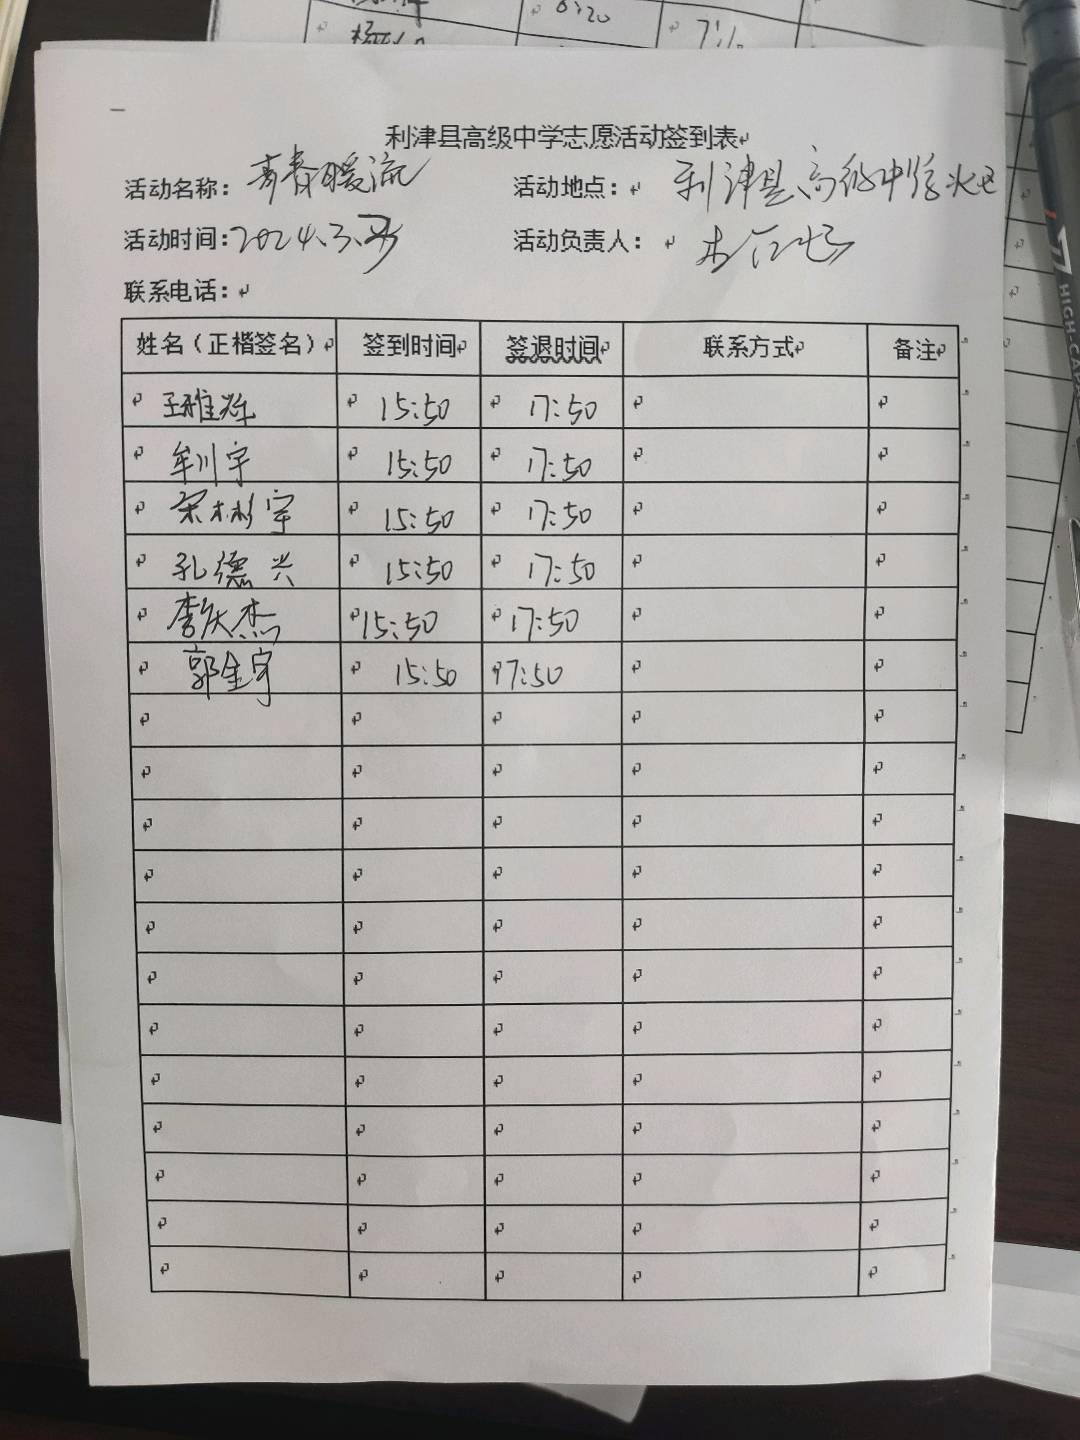 8:20
利津县高级中学志愿活动签到表
活动名称: 青春暖流 活动地点: 利津县高级中学
活动时间: 2024.3. 活动负责人:
联系电话:
姓名(正楷签名) 签到时间 签退时间 联系方式 备注
王雅 15:50 17:50
牟川宇 15:50 17:50
宋彬宇 15:50 17:50
孔德兴 15:50 17:50
李庆杰 15:50 17:50
郭金宇 15:50 17:50
HIGH-CAPA